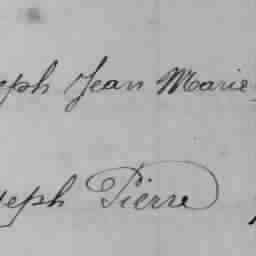 eph Jean Marie
seph Pierre